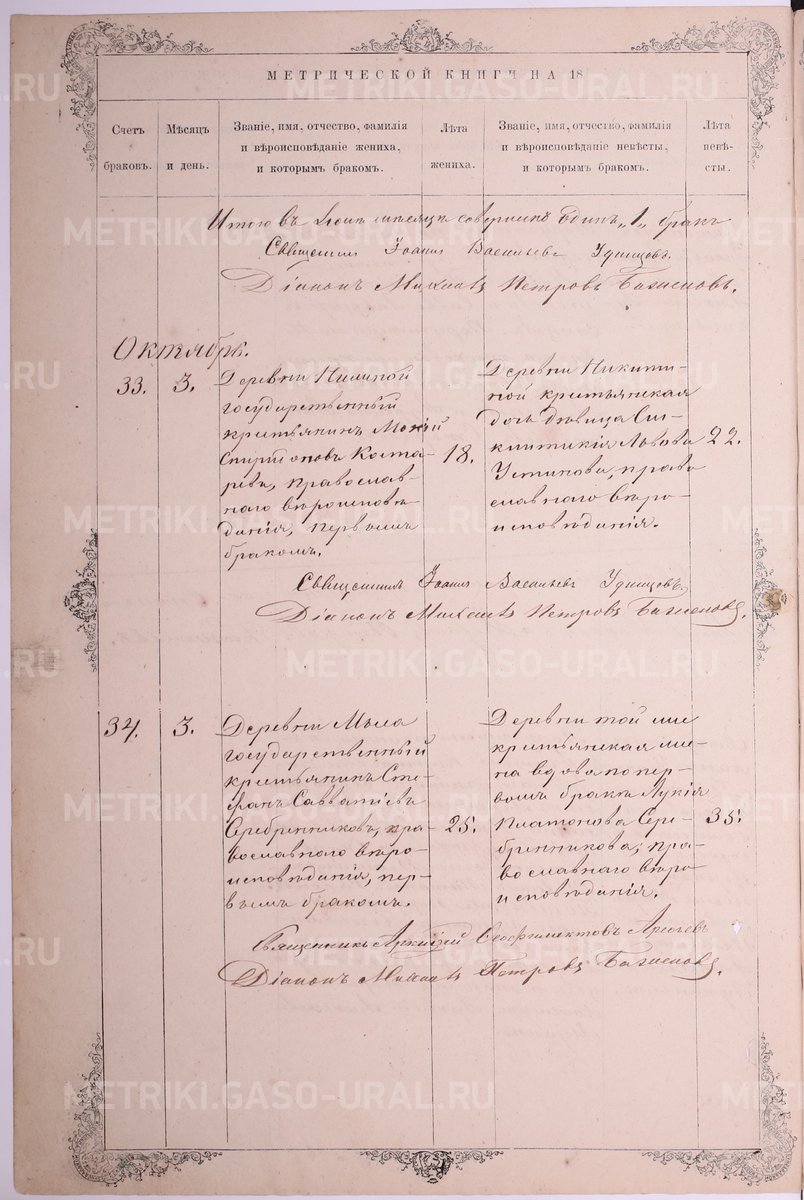 МЕТРИЧЕСКОЙ КНИГИ НА 18
Счетъ браковъ.
Мѣсяцъ и день.
Званіе, имя, отчество, фамилія и вѣроисповѣданіе жениха, и которымъ бракомъ.
Лѣта жениха.
Званіе, имя, отчество, фамилія и вѣроисповѣданіе невѣсты, и которымъ бракомъ.
Лѣта невѣ-сты.
Итого въ мѣсяцѣ одинъ „1„ бракъ
Священникъ Іоаннъ Васильевъ Удинцовъ.
Діаконъ Михаилъ Петровъ Баженовъ.
Октябрь.
33.
3.
Деревни
государственный
крестьянинъ Мокій
Спиридоновъ Коста-
ревъ, православ-
наго вѣроисповѣ-
данія, первымъ
бракомъ.
18.
Деревни Никити-
ной крестьянская
дочь дѣвица Син-
клитикія Львова
Устинова, право
славнаго вѣро-
исповѣданія.
22.
Священникъ Іоаннъ Васильевъ Удинцовъ.
Діаконъ Михаилъ Петровъ Баженовъ.
34.
3.
Деревни Мыса
государственный
крестьянинъ Сте-
фанъ Савватіевъ
Серебренниковъ, пра-
вославнаго вѣро-
исповѣданія, пер-
вымъ бракомъ.
25.
Деревни той же
крестьянская же-
на вдова по пер-
вомъ бракѣ Лукія
Платонова Сере-
бренникова, пра-
вославнаго вѣро
исповѣданія.
35.
Священникъ Аркадій Феофилактовъ
Діаконъ Михаилъ Петровъ Баженовъ.
METRIKI.GASO-URAL.RU